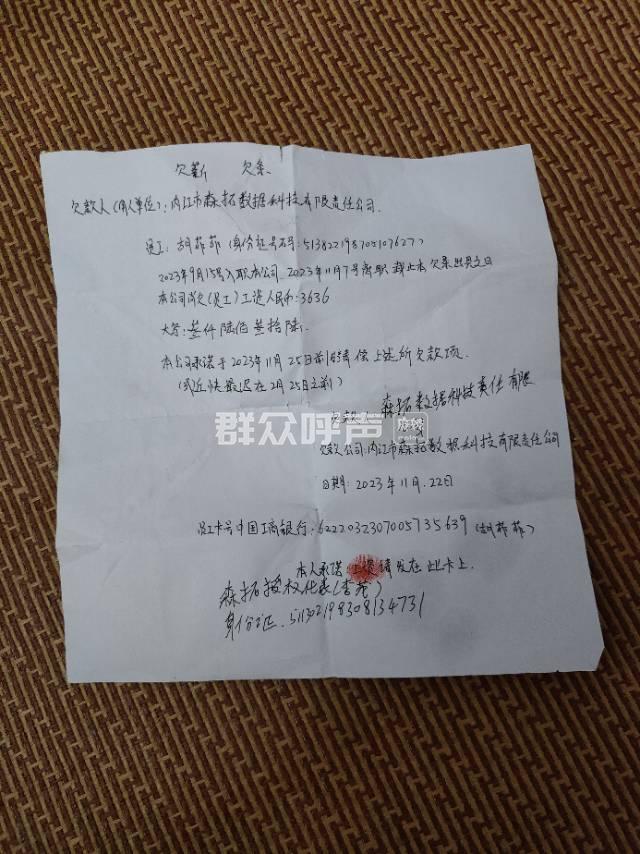 欠薪 欠条
欠款人(用人单位):内江市森拓数据科技有限责任公司.
员工:胡茹茹(身份证号码:513822198705107627)
2023年9月15号入职本公司 2023年11月7号离职 截止本欠条出具之日
本公司尚欠(员工)工资人民币:3636
大写:叁仟陆佰叁拾陆.
本公司承诺于2023年11月25日前结清偿上述所欠款项.
(或近快最迟在2月25日之前)
森拓数据科技责任有限
公司
欠款公司:内江市森拓数据科技有限责任公司
日期:2023年11月.22日
员工卡号中国工商银行:6222032307005735639(胡茹茹)
本人承诺:工资请发在此卡上.
森拓授权代表(李茂)
身份证.511302198308134731
群众呼声